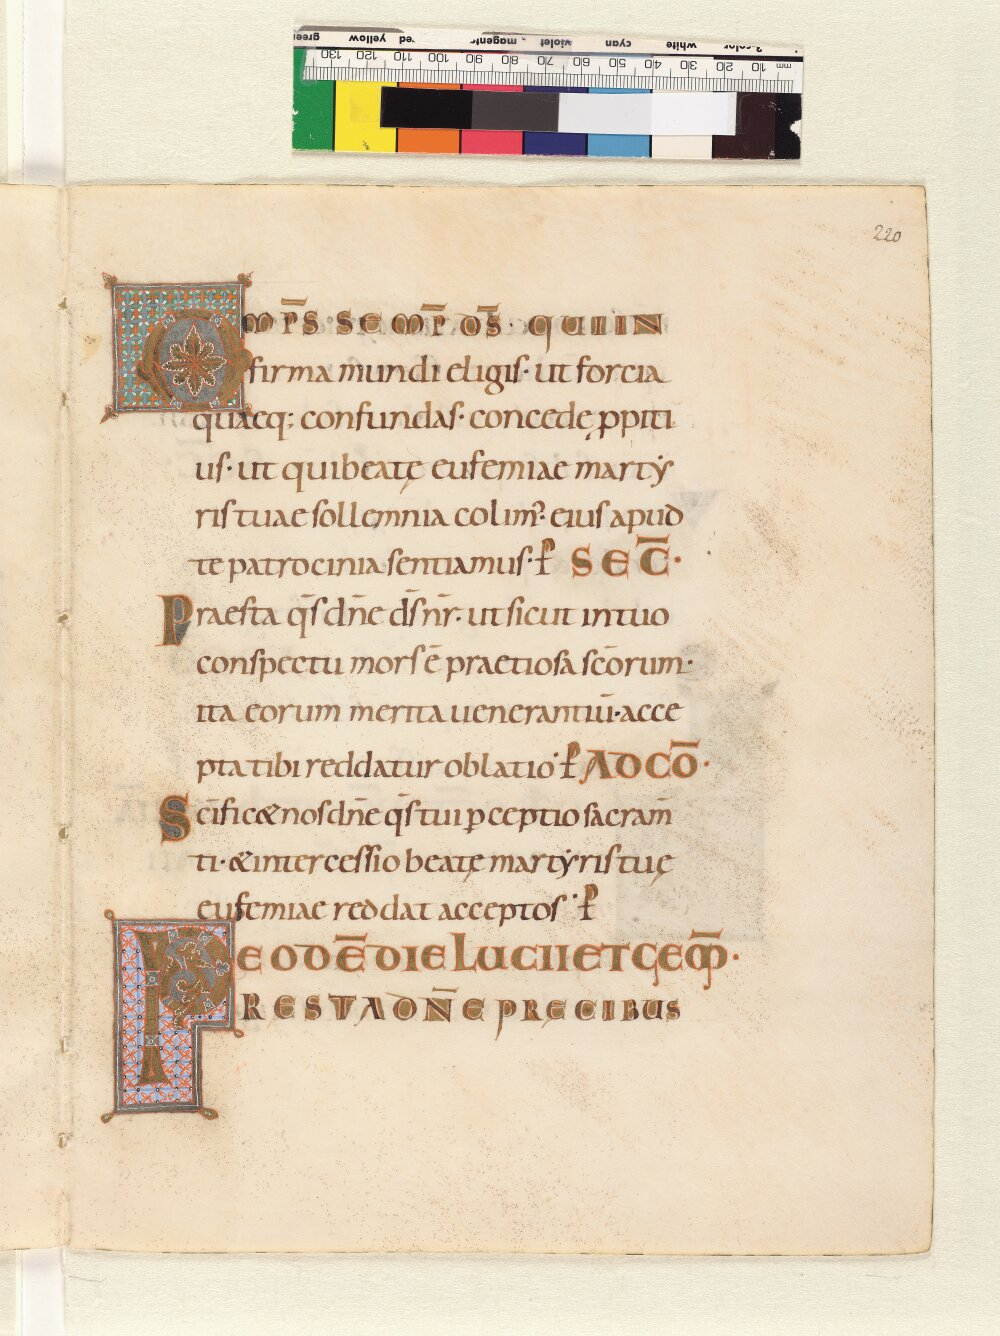 220
Omp̄s semp̄ d̄s· qui in
firma mundi eligis· ut forcia
quaeq; confundas· concede ̨ppiti
us· ut qui beatę eufemiae marty
ris tuae sollemnia colim᾿· eius apud
te patrocinia sentiamus· P SEC̄·
Praesta q̄s dn̄e d̄s nr̄· ut sicut in tuo
conspectu mors ē praetiosa sc̄orum·
ita eorum merita uenerantiū· acce
pta tibi reddatur oblatio· P AD CŌ·
Sc̄ificet nos dn̄e q̄s tui pceptio sacram̄
ti· & intercessio beatę martyris tuę
eufemiae reddat acceptos· P
EODĒ DIE LUCII ET GEM̄·
PRESTA DN̄E PRECIBUS
130 120 110 100 90 80 70 60 50 40 30 20 10 mm
green yellow red magenta violet cyan white 3-color